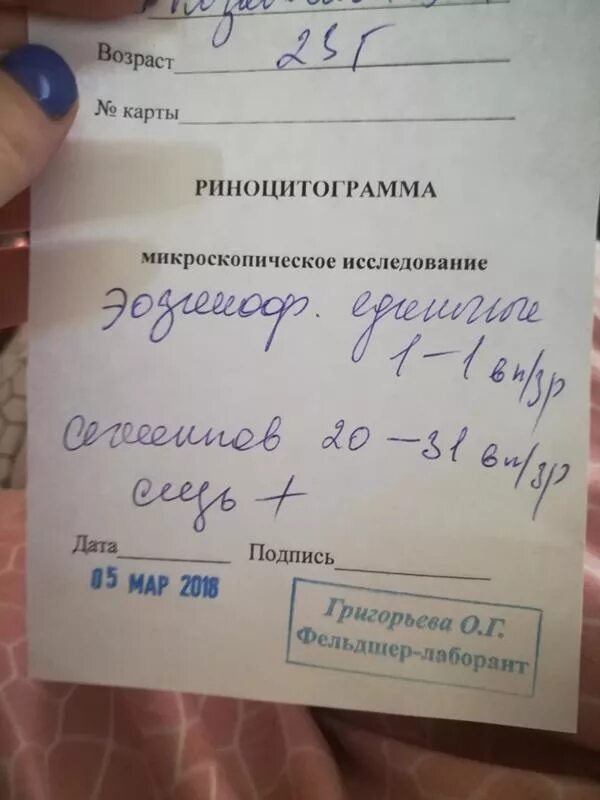 Возраст 23 г
№ карты
РИНОЦИТОГРАММА
микроскопическое исследование
Эозиноф. единичные
1-1 в п/зр
20-31 в п/зр
слизь +
Дата Подпись
05 МАР 2018
Григорьева О.Г.
Фельдшер-лаборант